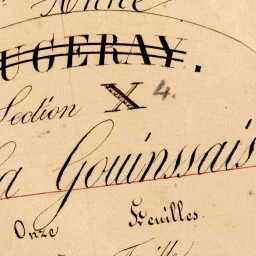 UGERAY.
Section X 4.
La Gouinssais
Onze Feuilles